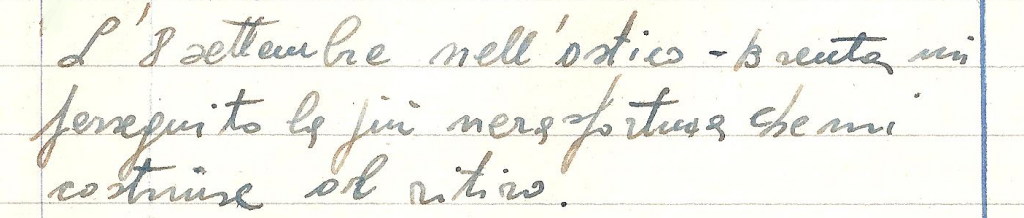 L'8 settembre nell'ostico - Brenta mi
perseguito la più nera sfortuna che mi
costrinse al ritiro.